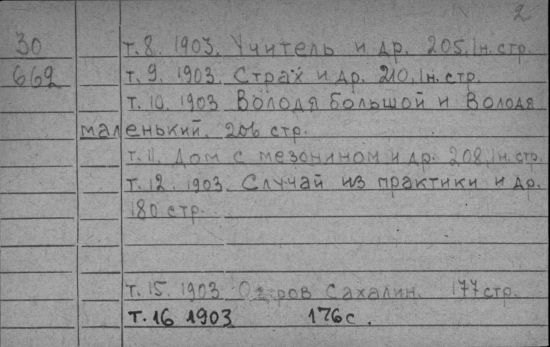 2
30 т. 8. 1903. Учитель и др. 205, 1н. стр.
662 т. 9. 1903. Страх и др. 210, 1н. стр.
т. 10. 1903. Володя большой и Володя
маленький. 206 стр.
т. 11. Дом с мезонином и др. 208, 1н. стр.
т. 12. 1903. Случай из практики и др.
180 стр.
т. 15. 1903. Остров Сахалин. 177 стр.
т. 16 1903 176 с.